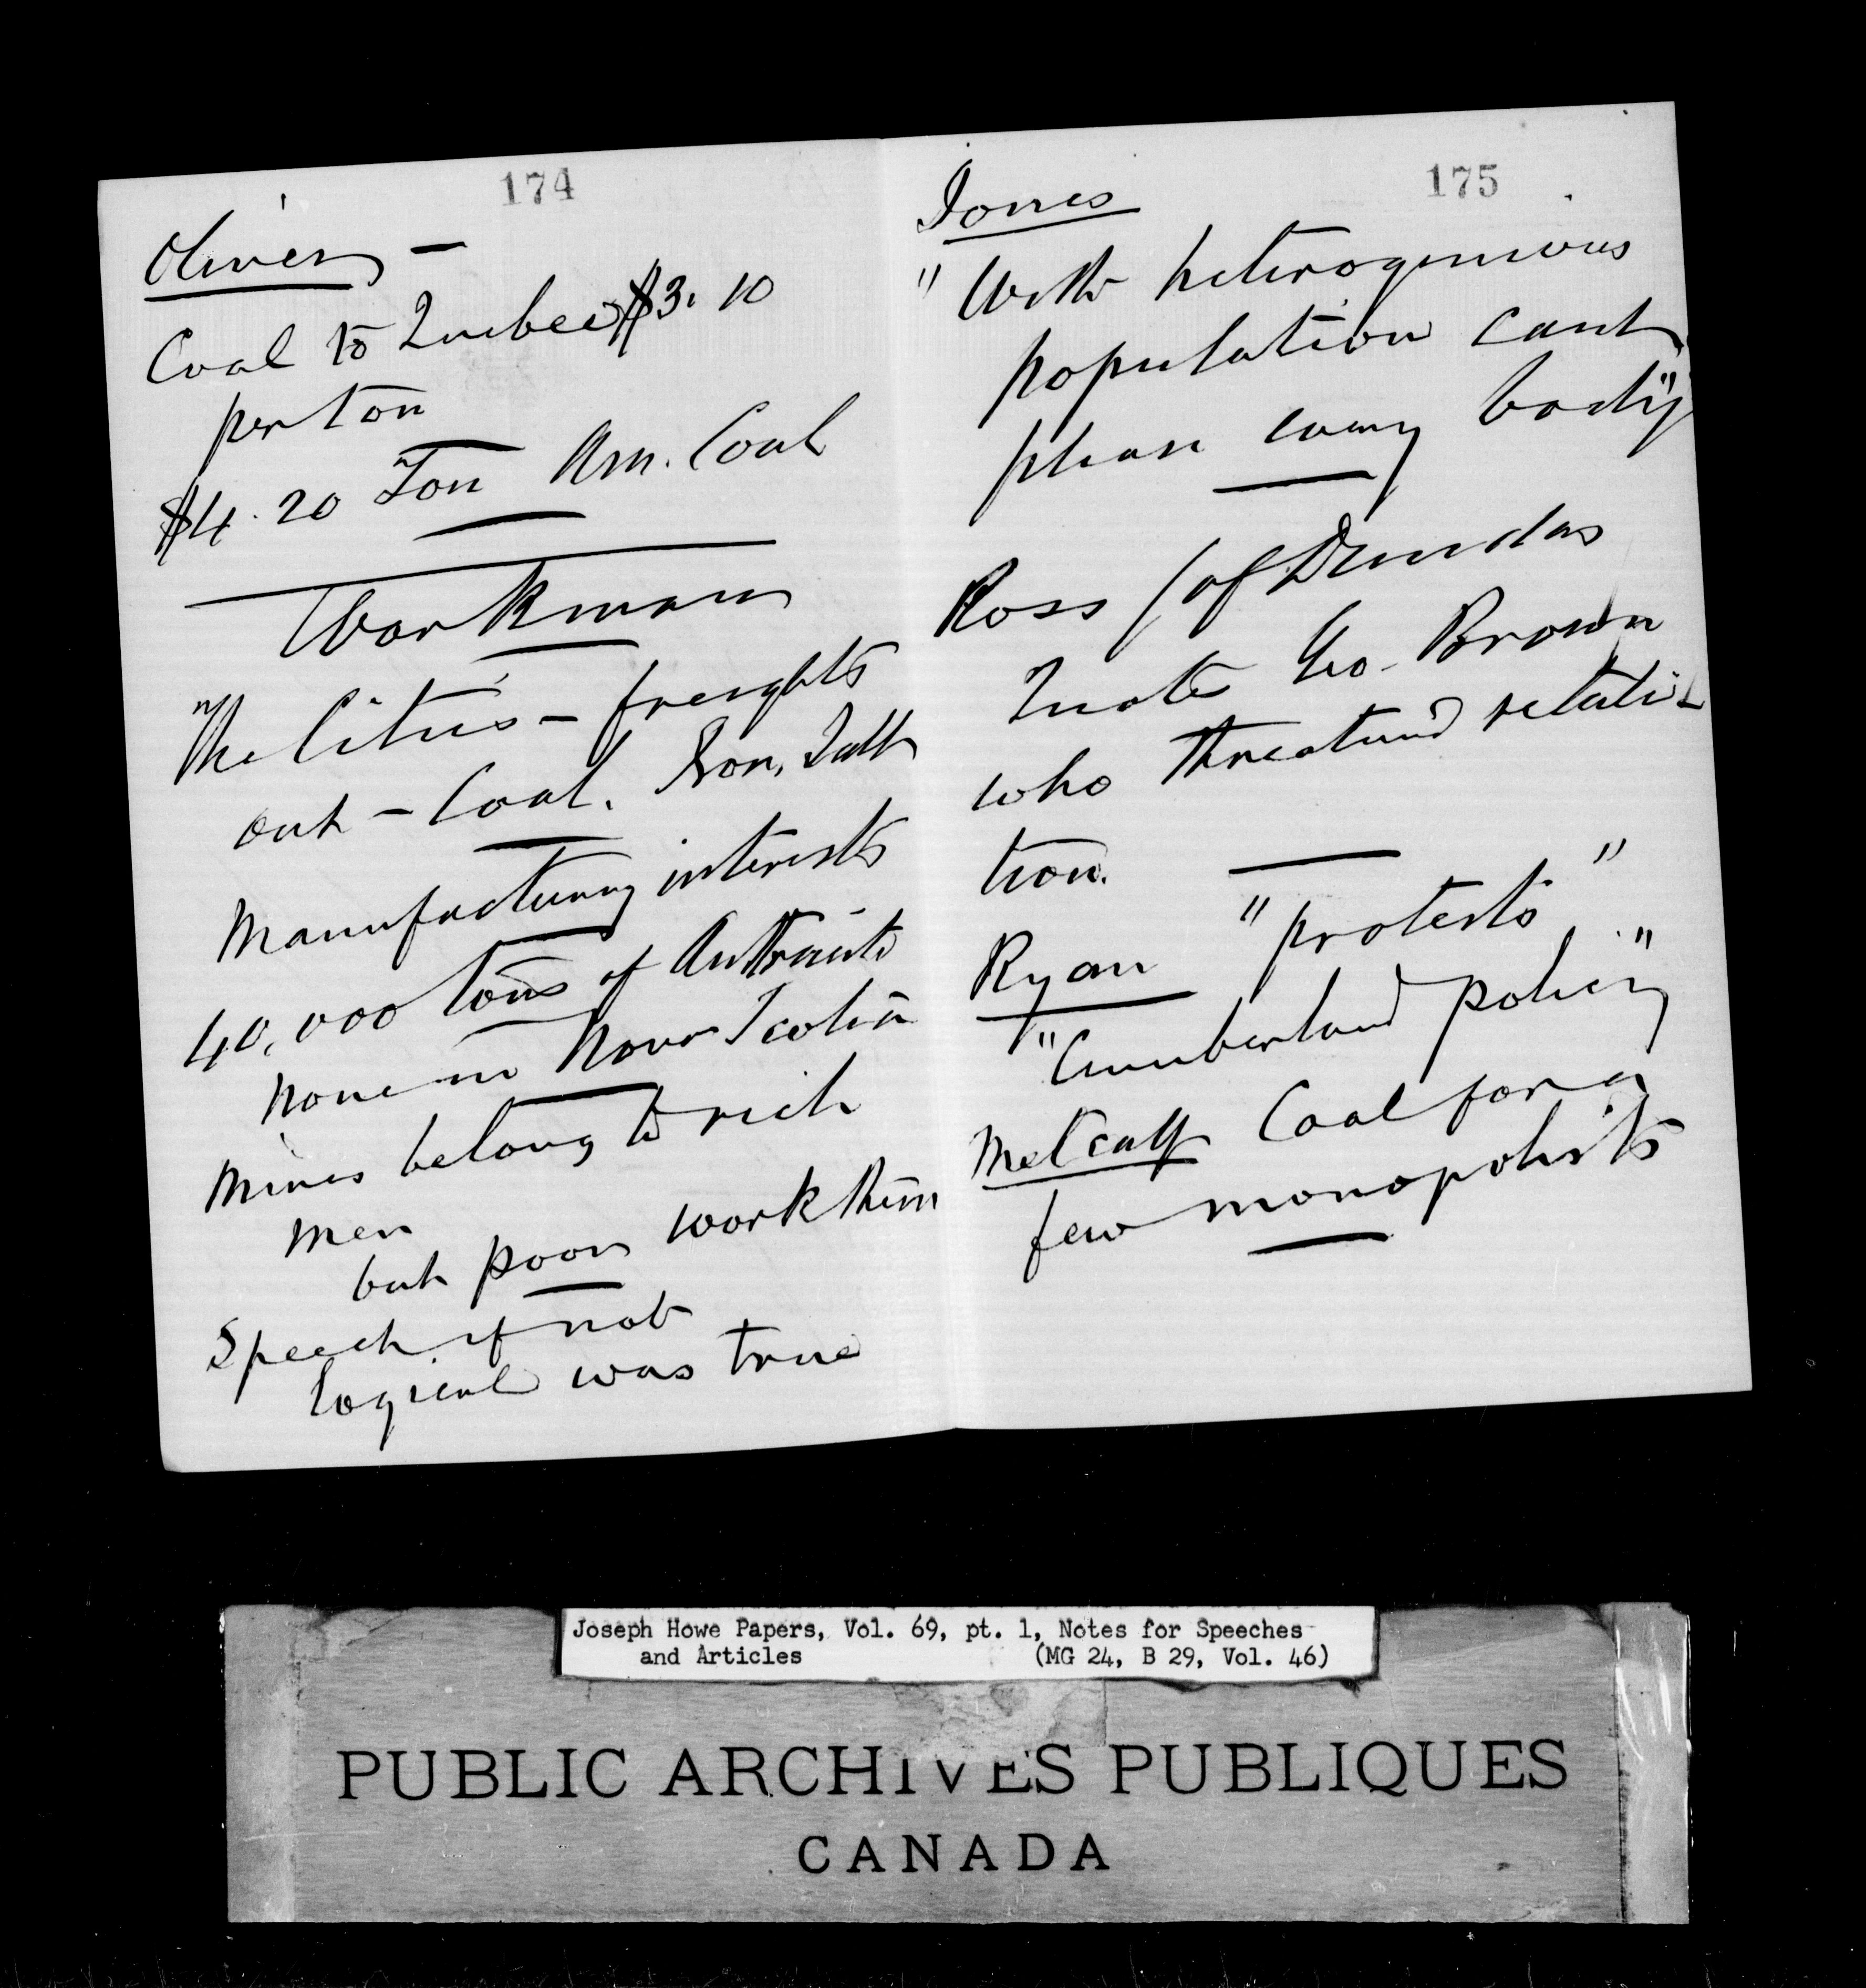 174
Oliver —
Coal to Quebec $3.10
per ton
$4.20 Ton Am. Coal
Workman
"The Cities — freights
out — Coal. Iron, Salt
Manufacturing interests
40,000 tons of Antracite
none in Nova Scotia
Mines belong to rich
men
but poor work them
Speech if not
logical was true
175
Jones
"With heterogenious
population cant
please every body"
Ross (of Dundas
Quotes Geo. Brown
who threatened retali-
tion.
Ryan "protests"
"Cumberland policy"
Metcalf Coal for a
few monopolists
Joseph Howe Papers, Vol. 69, pt. 1, Notes for Speeches
and Articles (MG 24, B 29, Vol. 46)
PUBLIC ARCHIVES PUBLIQUES
CANADA